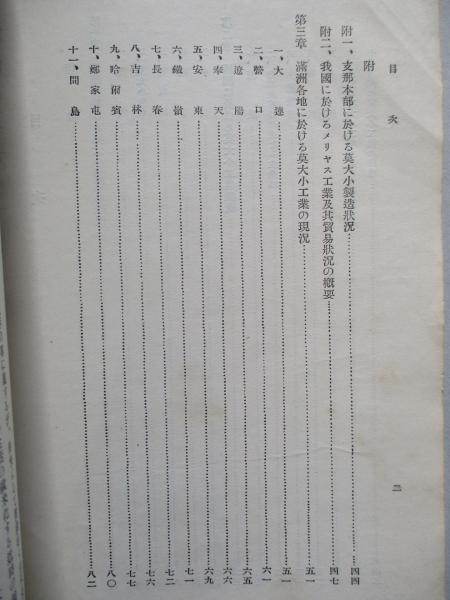 目次
二
附
附一、支那本部に於ける莫大小製造狀況…………四四
附二、我國に於けるメリヤス工業及其貿易狀況の槪要…………四七
第三章 滿洲各地に於ける莫大小工業の現況…………五一
一、大連…………五一
二、營口…………六一
三、遼陽…………六五
四、奉天…………六六
五、安東…………六九
六、鐵嶺…………七一
七、長春…………七二
八、吉林…………七六
九、哈爾賓…………七七
十、鄭家屯…………八〇
十一、間島…………八二